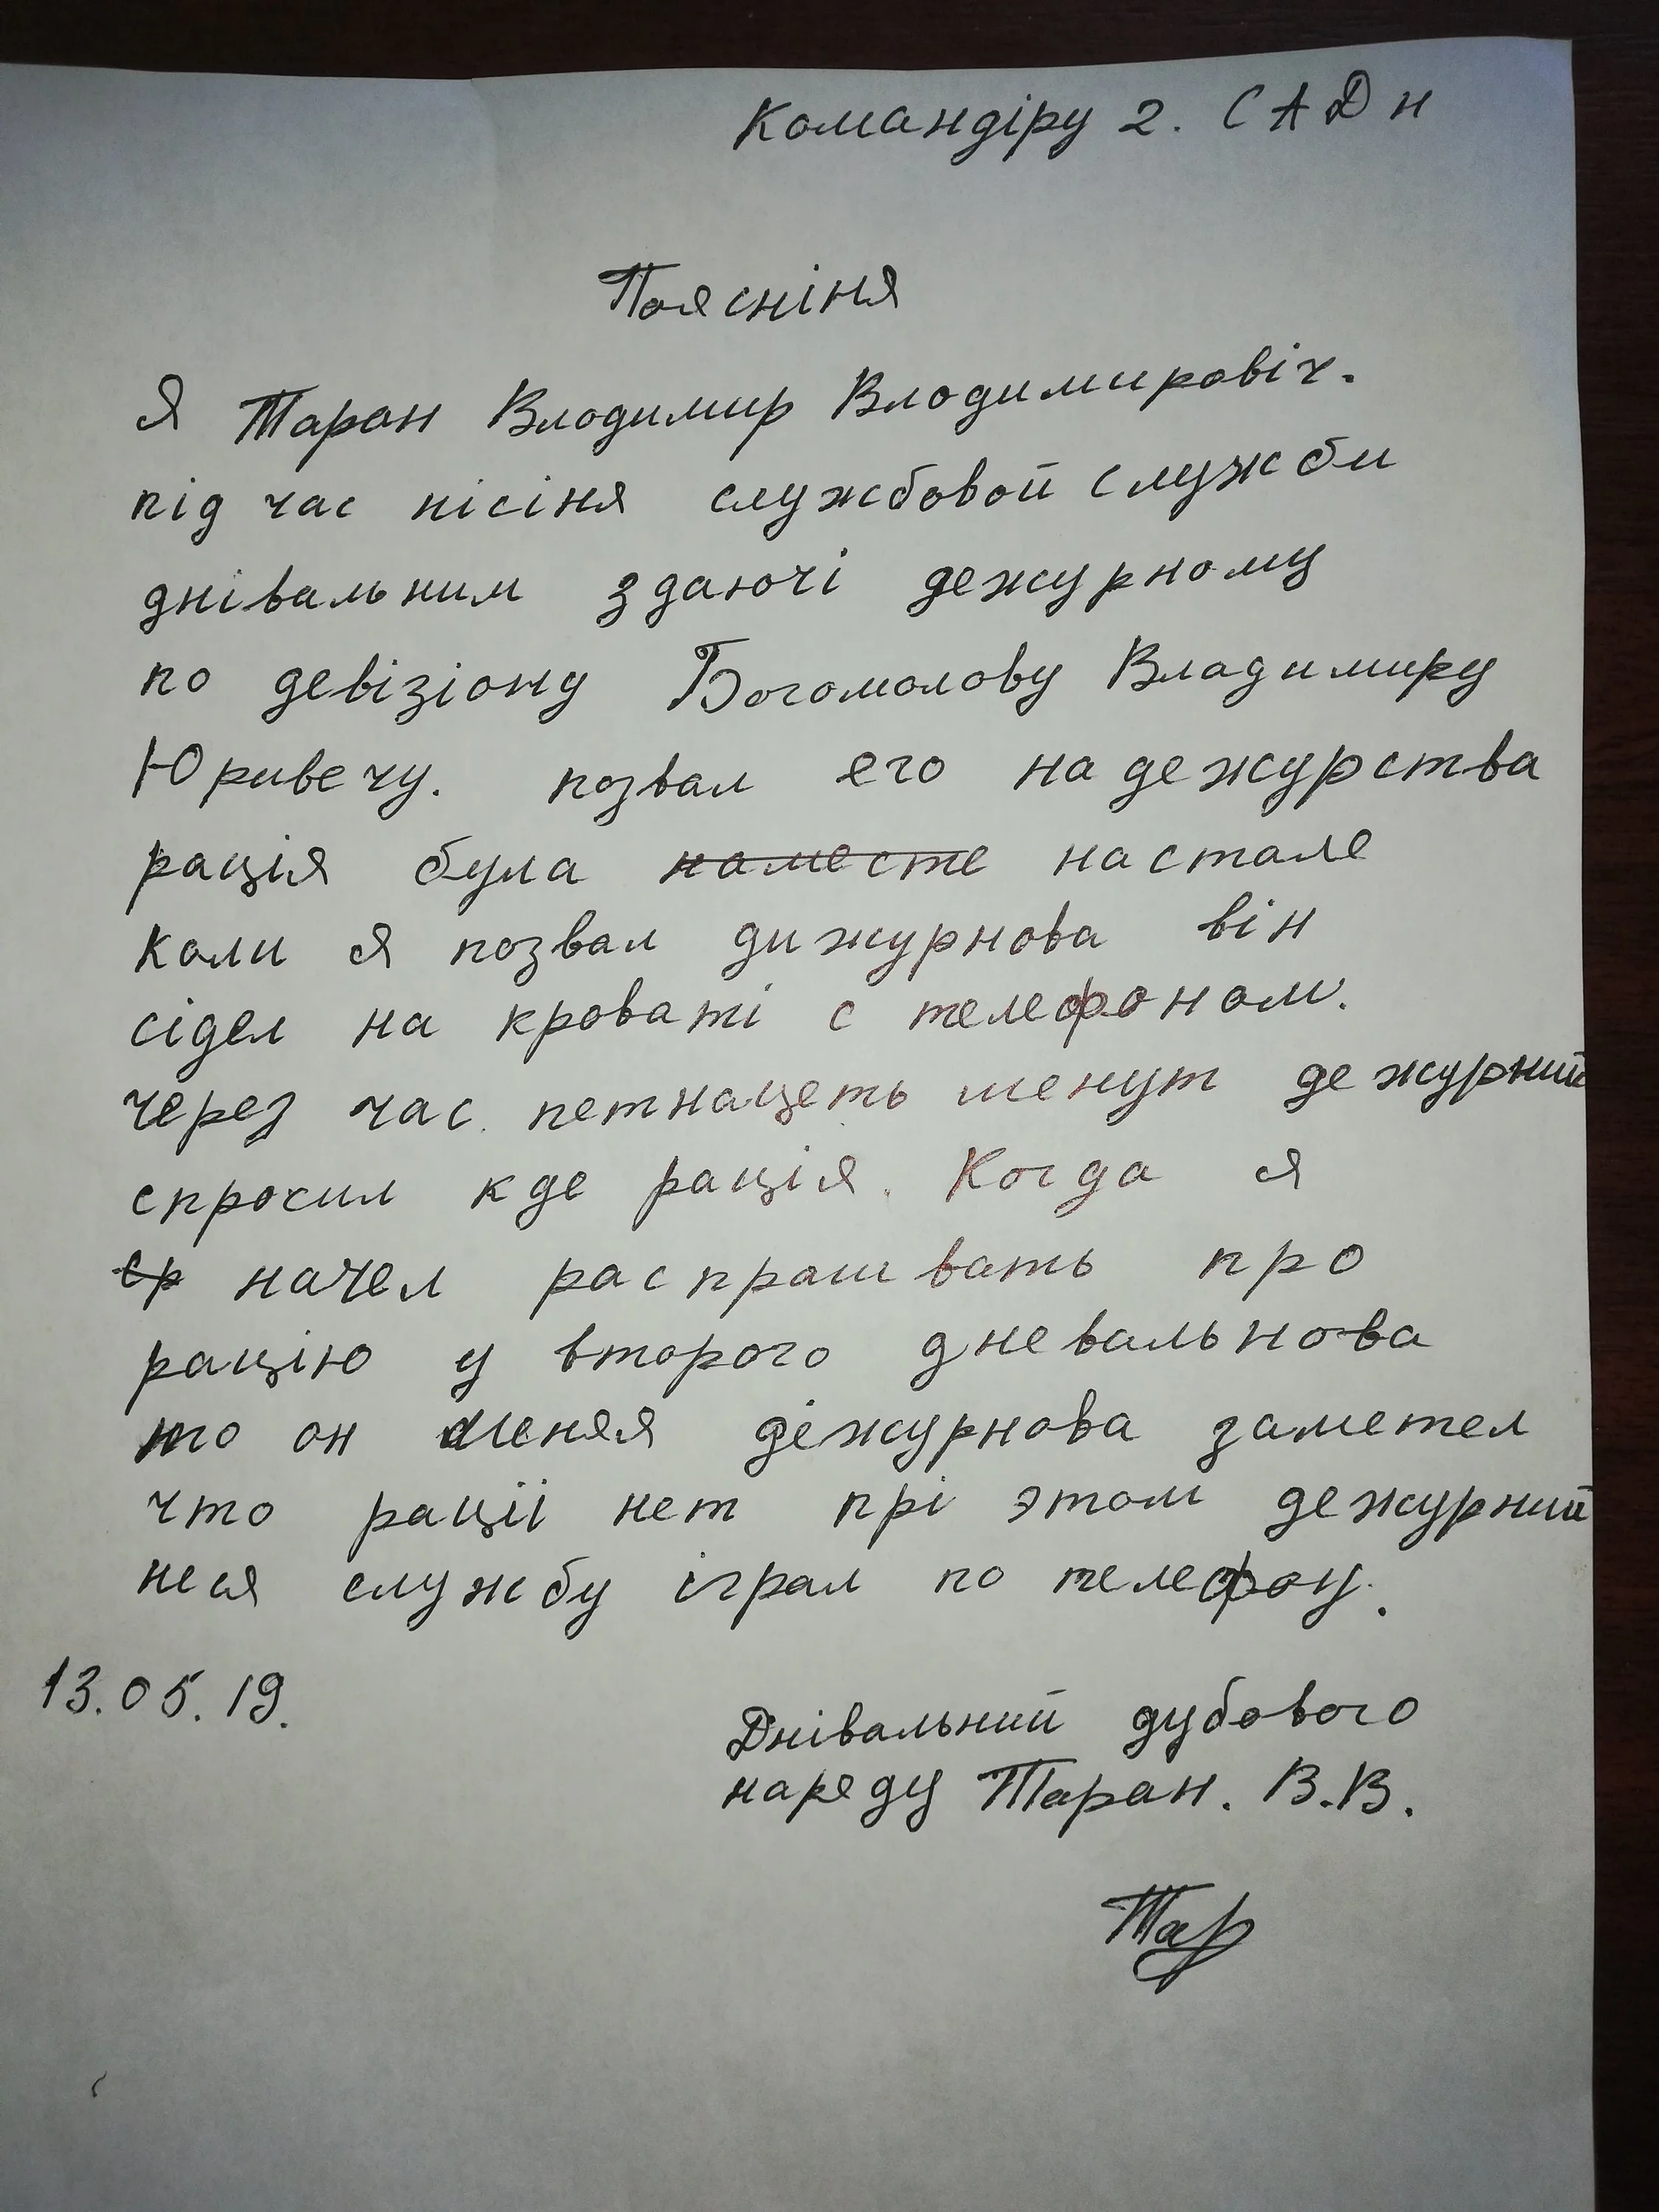 Командіру 2. САДн
Поясніня
Я Таран Влодимир Влодимировіч.
під час нісіня службовой служби
днівальним здаючі дежурному
по девізіону Богомолову Владимиру
Юривечу. позвал его на дежурства
рація була наместе на стале
Коли я позвал дижурнова він
сідел на кроваті с телефоном.
через час петнацеть менут дежурний
спросил кде рація. Когда я
ср начел распрашвать про
рацію у второго дневальнова
то он меняя дежурнова заметел
что рації нет прі этом дежурний
неся службу іграл по телефоу.
13.05.19.
Днівальний дубового
наряду Таран. В.В.
Тар